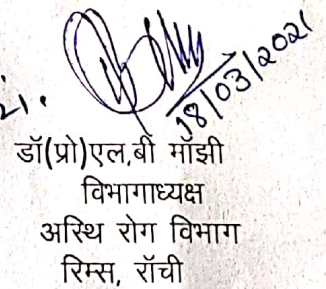 21.
18/03/2021
डॉ(प्रो)एल,बी मॉझी
विभागाध्यक्ष
अस्थि रोग विभाग
रिम्स, रॉची